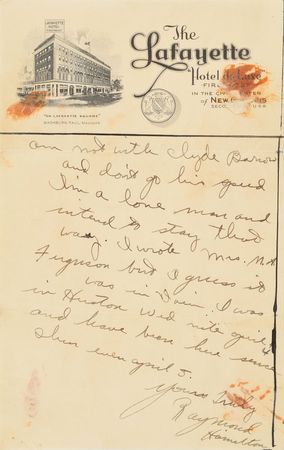 LAFAYETTE
HOTEL
The
Lafayette
Hotel de Luxe
FIREPROOF
IN THE CENTER
of NEW
SECO
USA
"ON LAFAYETTE SQUARE"
am not with Clyde Barrow
and don't go his speed
I'm a lone man and
intend to stay that
way. I wrote Mrs. M.A.
Ferguson but I guess it
was in vain. I was
in Huston Wed nite april 4
and have been here since
then even april 5.
Yours Truly
Raymond
Hamilton